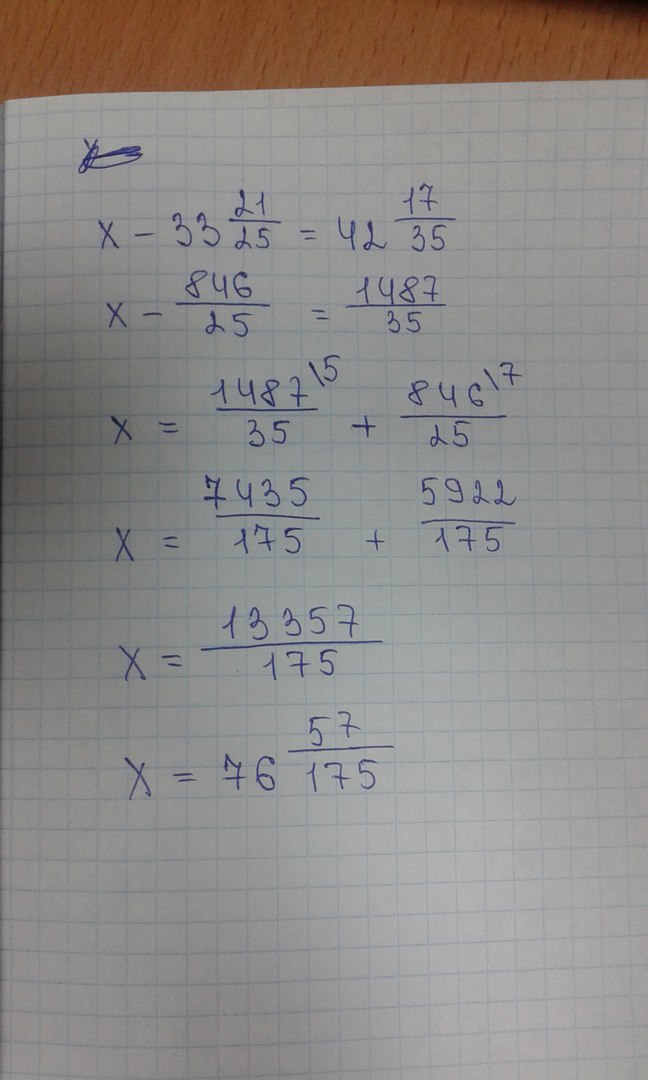 x - 33 21/25 = 42 17/35
x - 846/25 = 1487/35
x = 1487\5/35 + 846\7/25
x = 7435/175 + 5922/175
x = 13357/175
x = 76 57/175